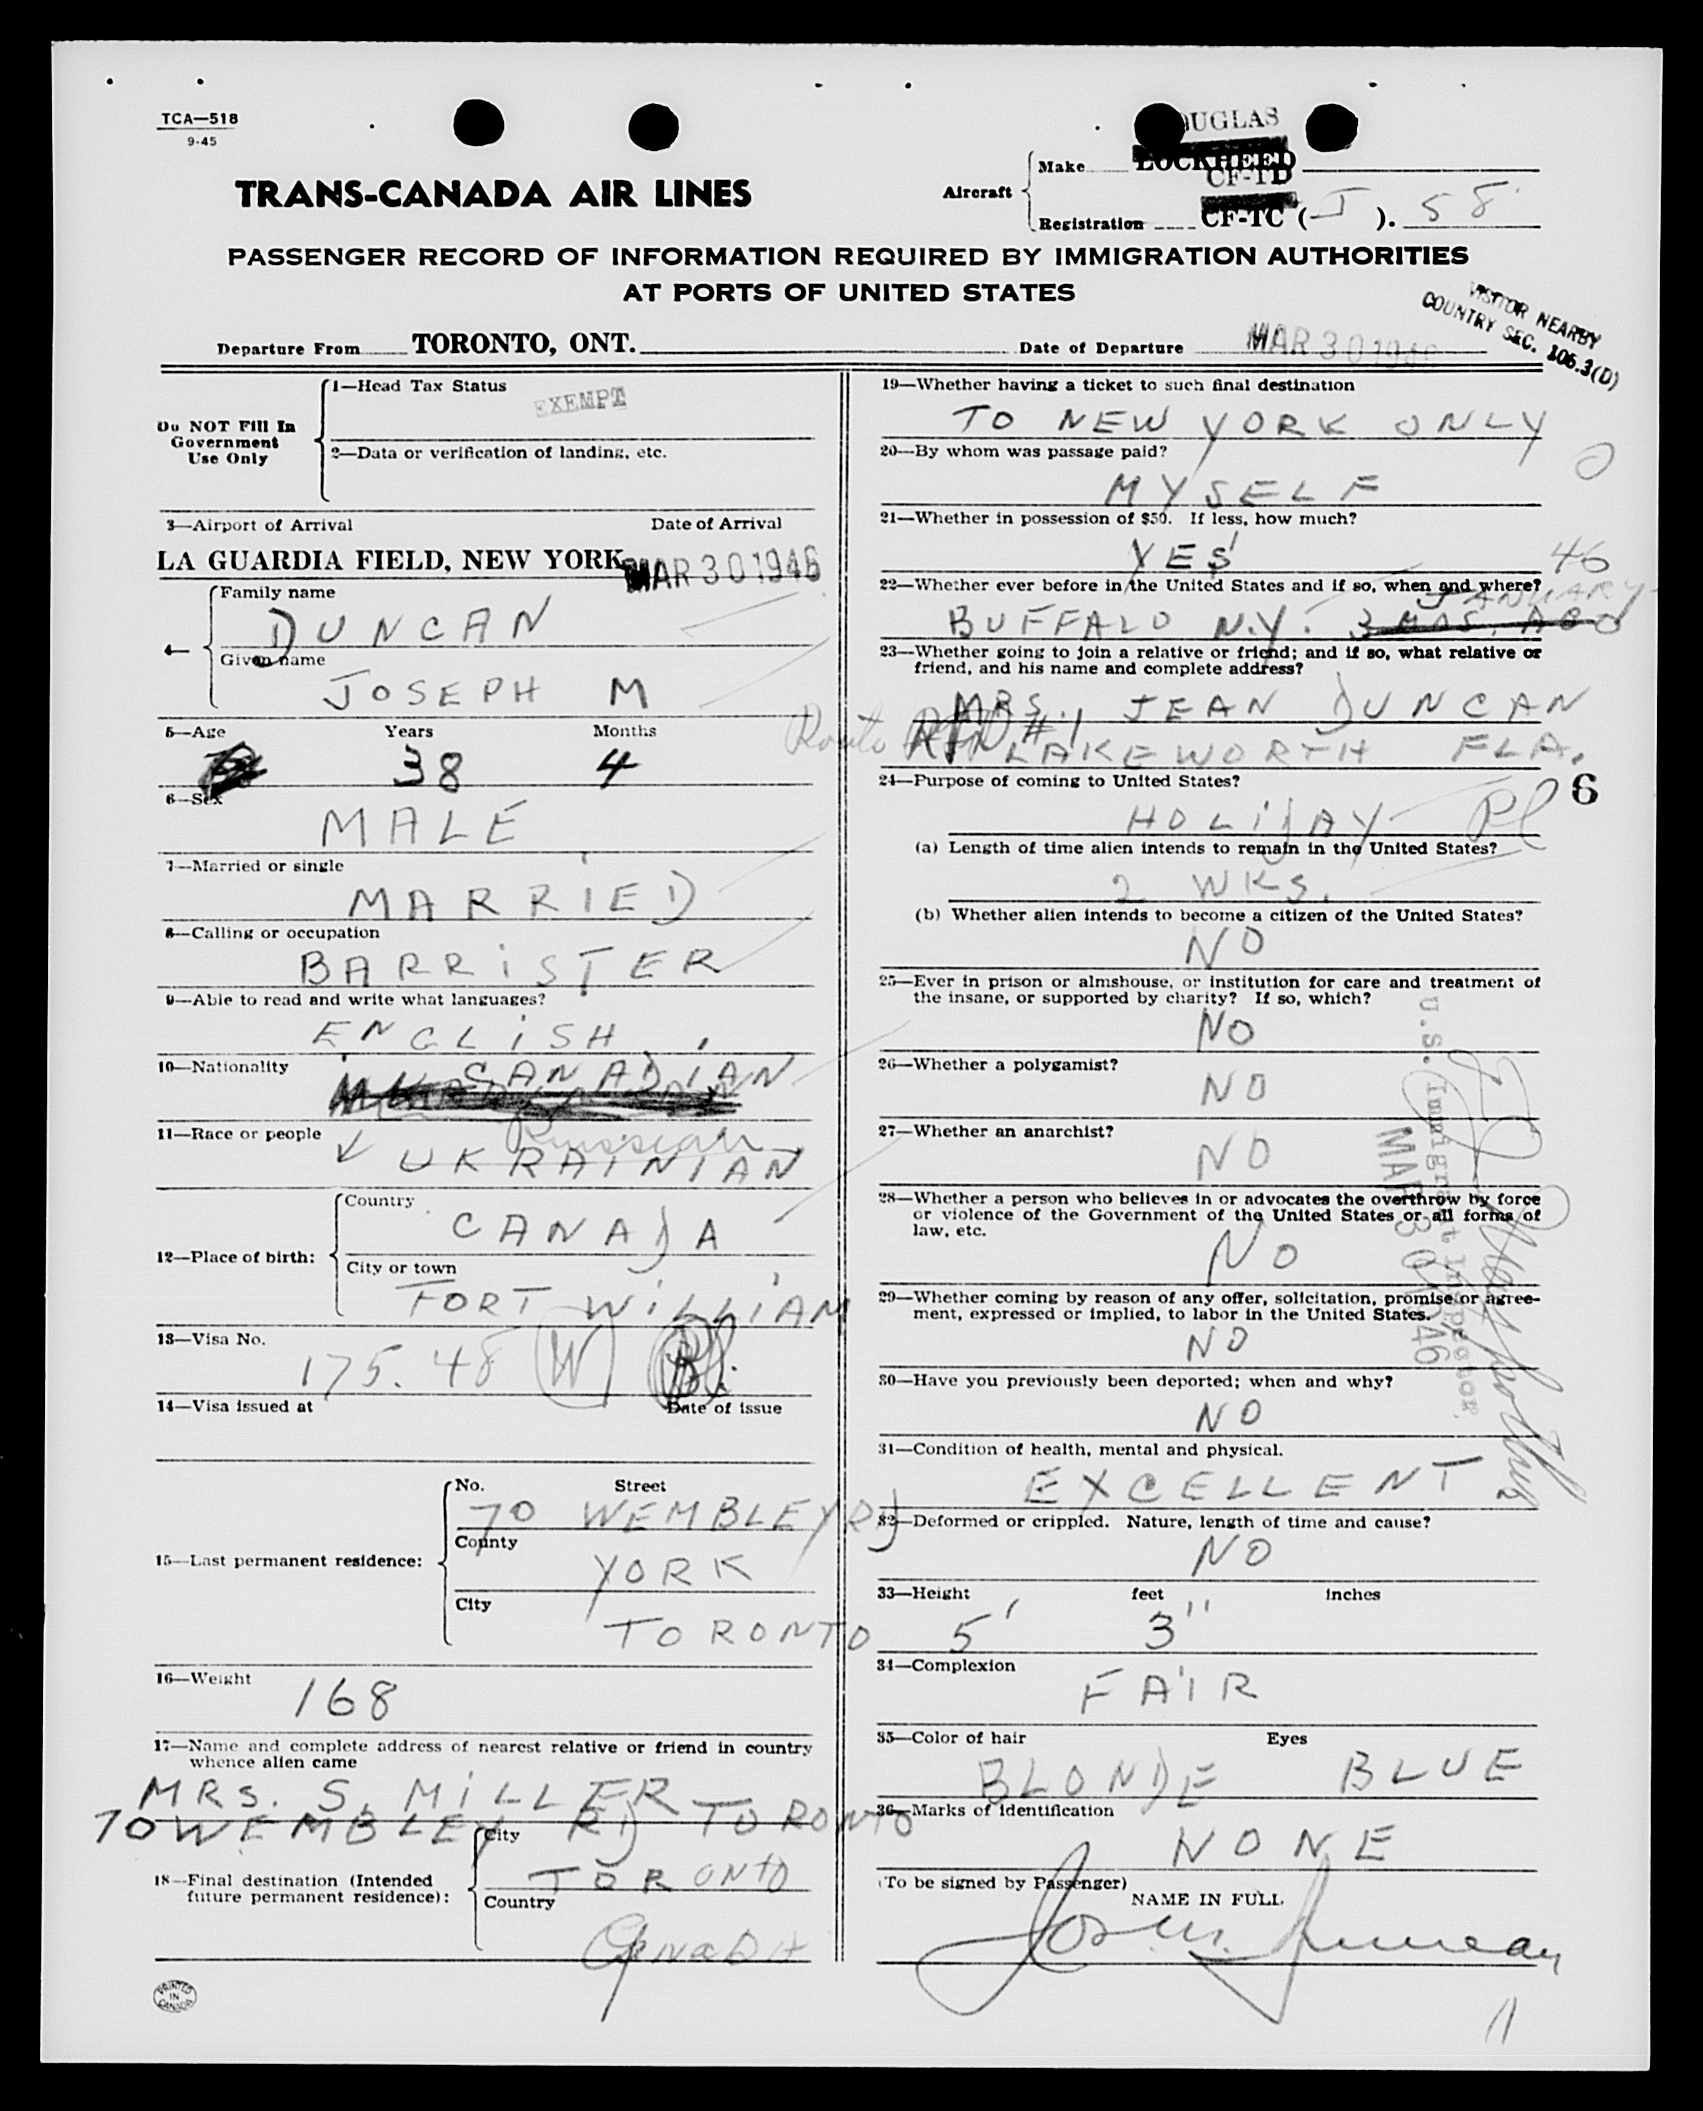 TCA—518
9-45
DOUGLAS
Make LOCKHEED
CF-TD
TRANS-CANADA AIR LINES
Aircraft
Registration CF-TC ( J ). 58
PASSENGER RECORD OF INFORMATION REQUIRED BY IMMIGRATION AUTHORITIES
AT PORTS OF UNITED STATES
VISITOR NEARBY
COUNTRY SEC. 106.3(D)
Departure From TORONTO, ONT. Date of Departure MAR 30 1946
Do NOT Fill In
Government
Use Only
1—Head Tax Status
EXEMPT
2—Data or verification of landing, etc.
3—Airport of Arrival Date of Arrival
LA GUARDIA FIELD, NEW YORK MAR 30 1946
4—
Family name
DUNCAN
Given name
JOSEPH M
5—Age Years Months
38 4
6—Sex
MALE
7—Married or single
MARRIED
8—Calling or occupation
BARRISTER
9—Able to read and write what languages?
ENGLISH
10—Nationality
CANADIAN
11—Race or people
Russian
UKRAINIAN
12—Place of birth:
Country
CANADA
City or town
FORT WILLIAM
13—Visa No.
175.48 W
14—Visa issued at Date of issue
15—Last permanent residence:
No. Street
70 WEMBLEY RD
County
YORK
City
TORONTO
16—Weight
168
17—Name and complete address of nearest relative or friend in country
whence alien came
MRS. S. MILLER
70 WEMBLEY RD TORONTO
18—Final destination (Intended
future permanent residence):
City
TORONTO
Country
CANADA
PRINTED
IN
CANADA
19—Whether having a ticket to such final destination
TO NEW YORK ONLY
20—By whom was passage paid?
MYSELF
21—Whether in possession of $50. If less, how much?
YES
46
22—Whether ever before in the United States and if so, when and where?
JANUARY
BUFFALO N.Y. 3 MOS. AGO
23—Whether going to join a relative or friend; and if so, what relative or
friend, and his name and complete address?
MRS. JEAN DUNCAN
Route #1 LAKEWORTH FLA.
24—Purpose of coming to United States?
6
HOLIDAY
(a) Length of time alien intends to remain in the United States?
2 WKS.
(b) Whether alien intends to become a citizen of the United States?
NO
25—Ever in prison or almshouse, or institution for care and treatment of
the insane, or supported by charity? If so, which?
NO
26—Whether a polygamist?
NO
27—Whether an anarchist?
NO
28—Whether a person who believes in or advocates the overthrow by force
or violence of the Government of the United States or all forms of
law, etc.
NO
29—Whether coming by reason of any offer, solicitation, promise or agree-
ment, expressed or implied, to labor in the United States.
NO
30—Have you previously been deported; when and why?
NO
U.S. Immigrant Inspector.
MAR 30 1946
31—Condition of health, mental and physical.
EXCELLENT
32—Deformed or crippled. Nature, length of time and cause?
NO
33—Height feet inches
5' 3"
34—Complexion
FAIR
35—Color of hair Eyes
BLONDE BLUE
36—Marks of identification
NONE
(To be signed by Passenger)
NAME IN FULL
Jos. M. Duncan
11